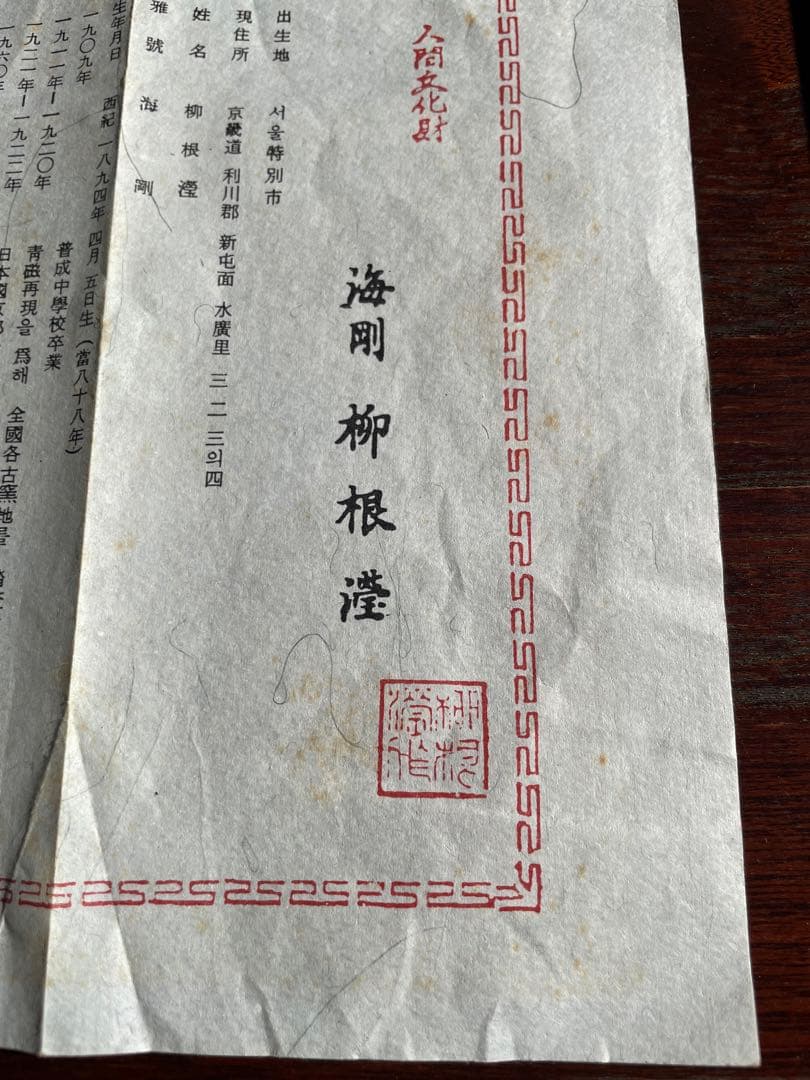 人間文化財
海剛 柳根瀅
柳根瀅作
出生地 서울特別市
現住所 京畿道 利川郡 新屯面 水廣里 三二三의四
姓名 柳根瀅
雅號 海剛
生年月日 西紀 一八九四年 四月 五日生 (當八十八年)
一九〇九年 普成中學校卒業
一九一一年ー一九二〇年 靑磁再現을 爲해 全國各古窯地를
一九二一年ー一九二二年 日本國京都
一九六〇年